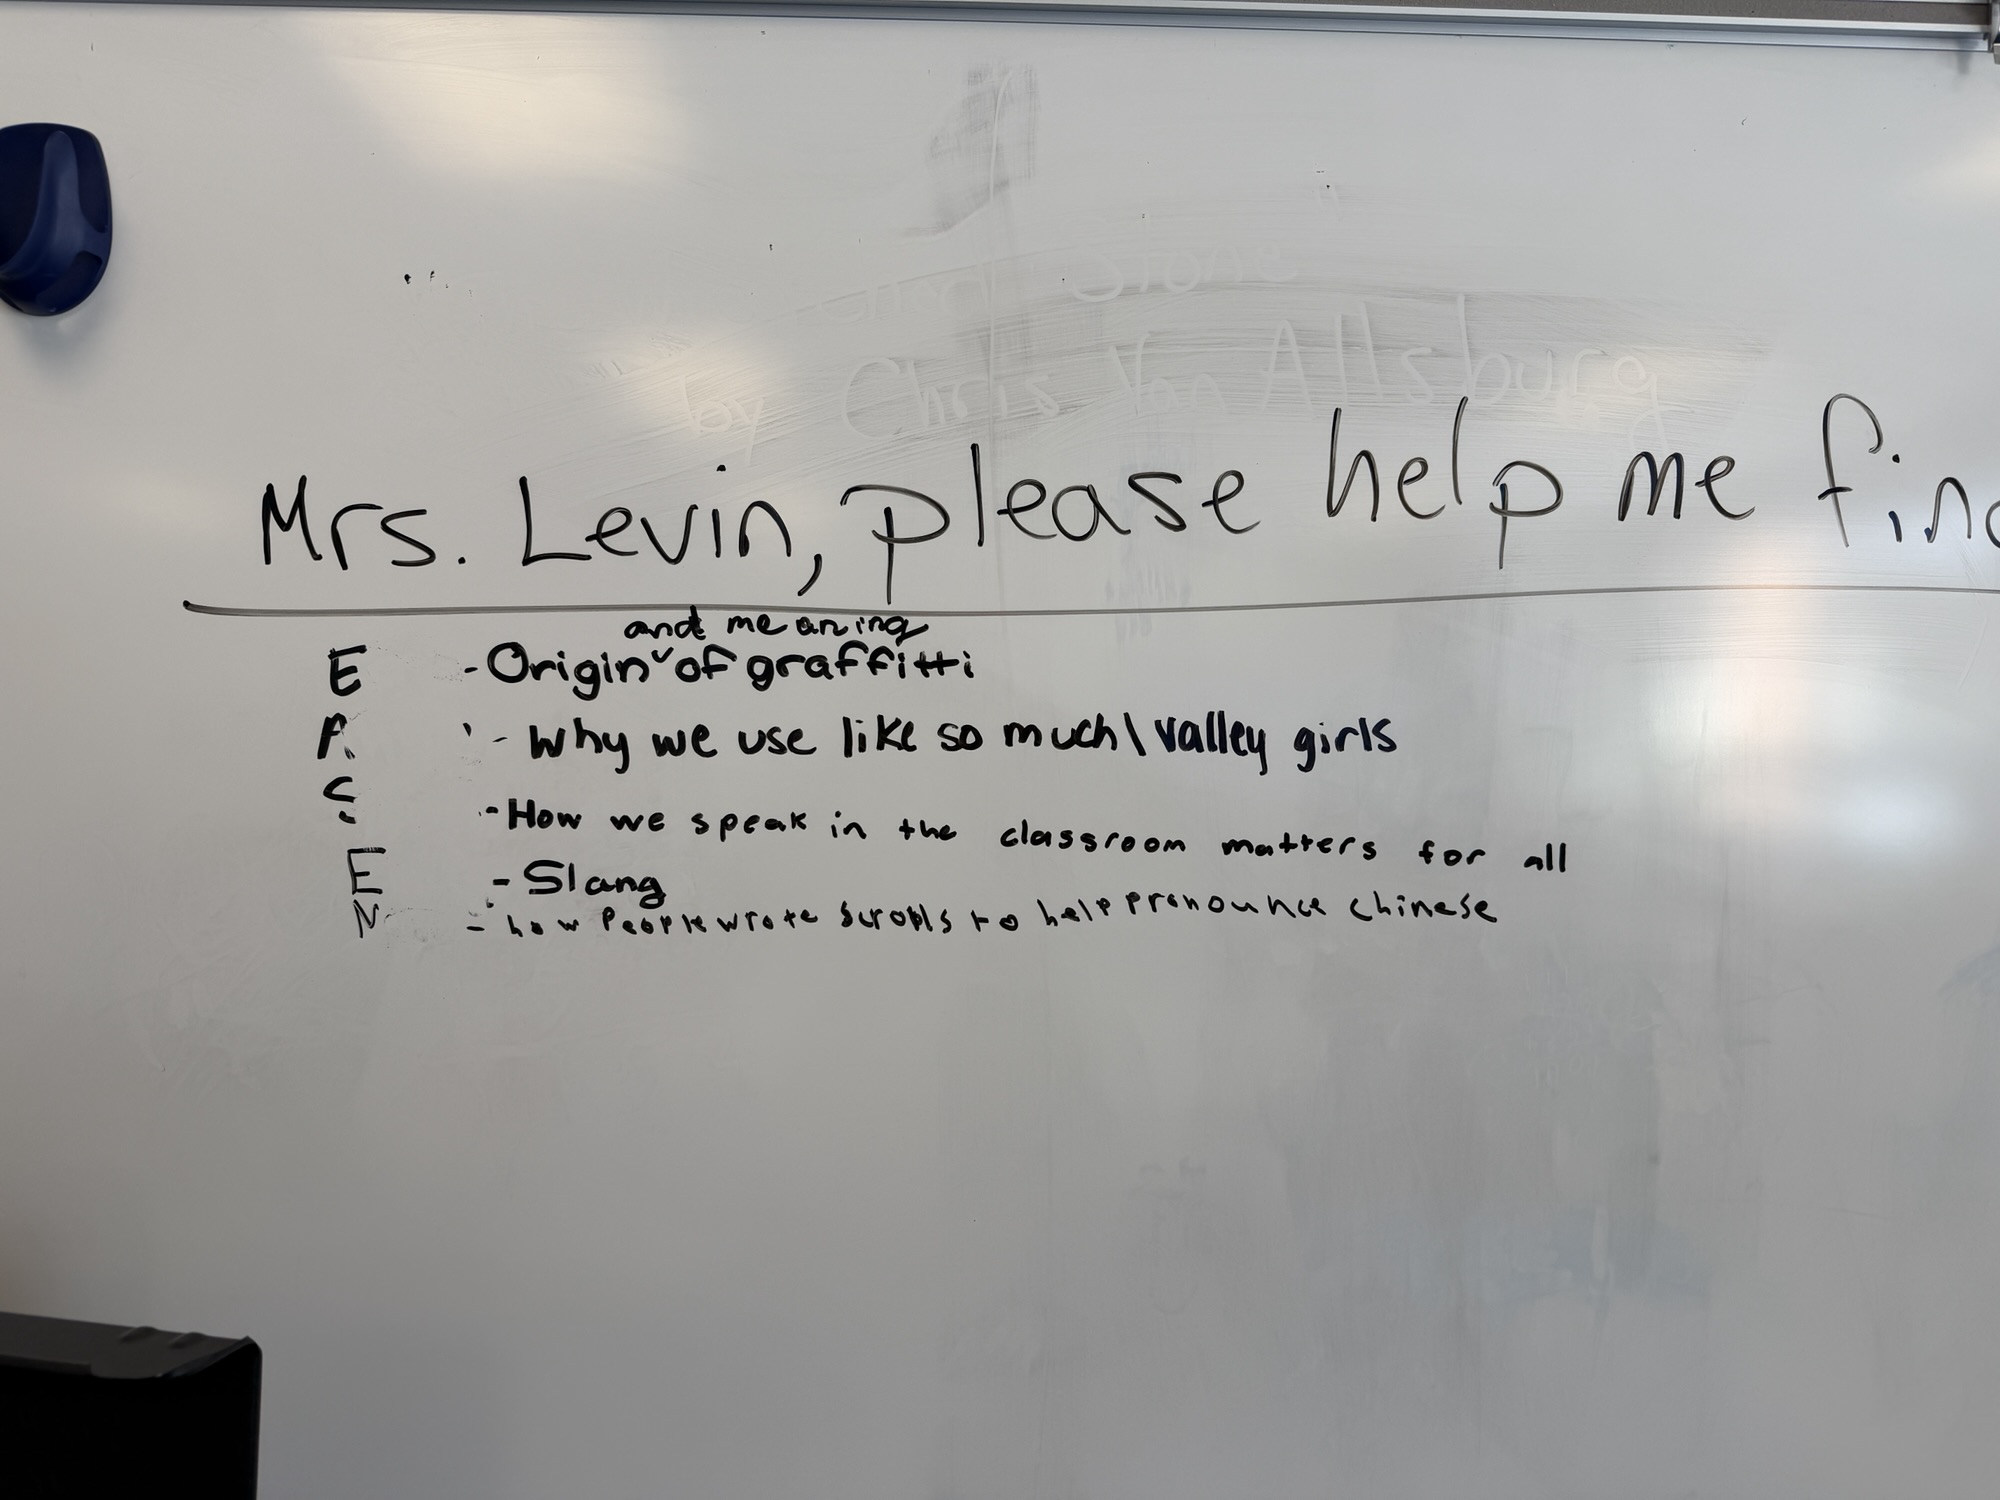 Stone"
by Chris Van Allsburg
Mrs. Levin, please help me find
and meaning
E - Origin ˅ of graffitti
A - Why we use like so much \ valley girls
C - How we speak in the classroom matters for all
E - Slang
N - how People wrote scrolls to help pronounce chinese